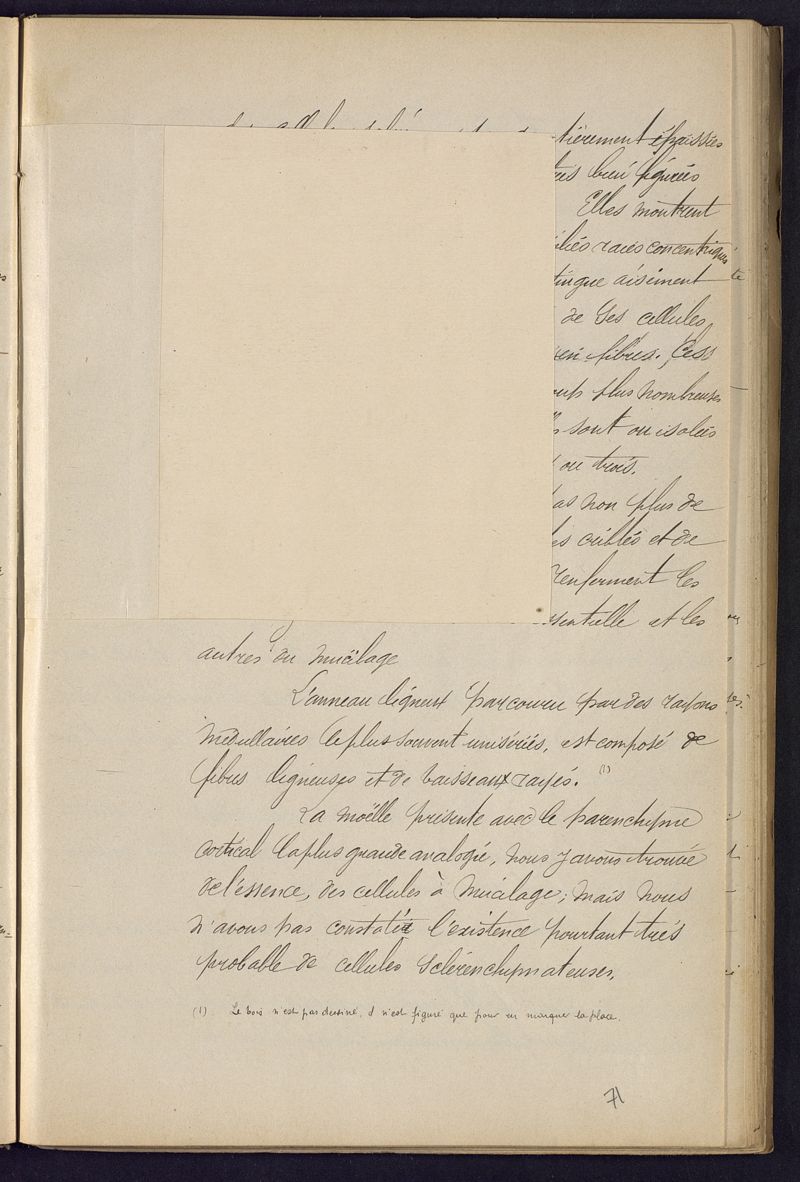 tièrement épaissies
bien figurées
Elles montrent
raies concentriques
tingue aisément
de ses cellules
en fibres. Ces
plus nombreuses
sont ou isolées
ou trois.
as non plus de
es criblés et de
renferment les
sentielle et les
autres du mucilage
L'anneau ligneux parcouru par des rayons
médullaires le plus souvent unisériés, est composé de
fibres ligneuses et de vaisseaux rayés. (1)
La moëlle présente avec le parenchyme
cortical la plus grande analogie, nous y avons trouvée
de l'essence, des cellules à mucilage; mais nous
n'avons pas constatée l'existence pourtant très
probable de cellules sclérenchymateuses.
(1) Le bois n'est pas dessiné, il n'est figuré que pour en marquer la place.
71